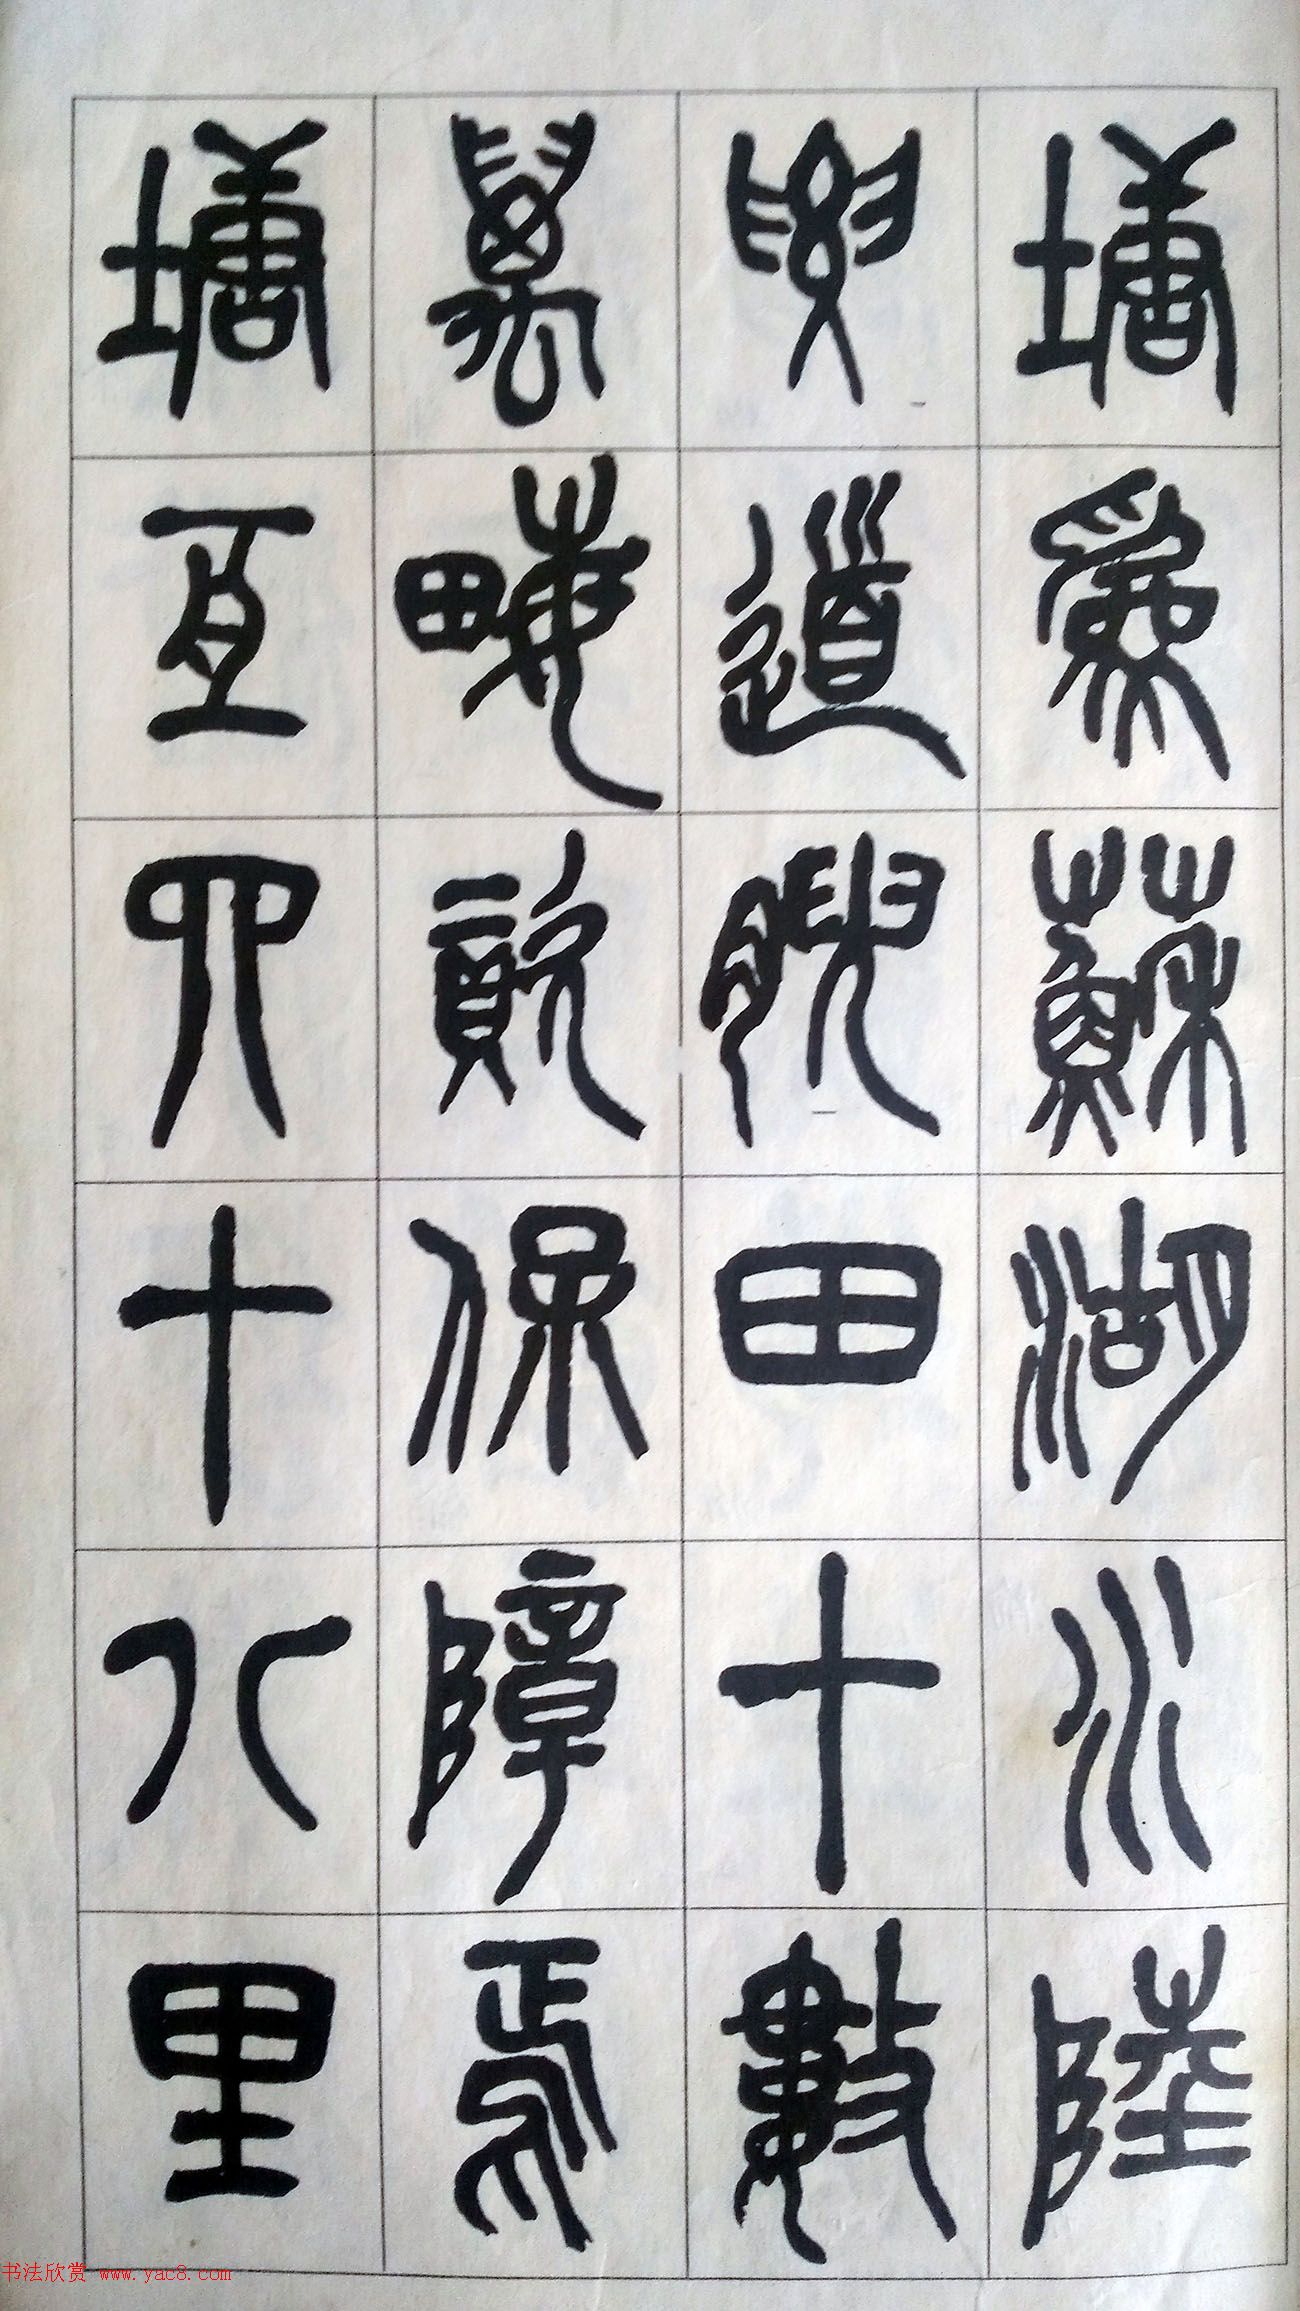 塘為蘇湖水陸
要道腴田十數
萬畮競保障焉
塘亙四十八里
书法欣赏 www.yac8.com